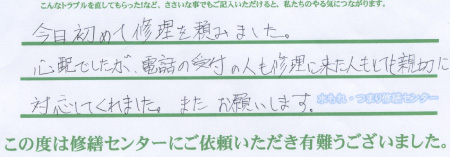 こんなトラブルを直してもらった!など、ささいな事でもご記入いただけると、私たちのやる気につながります。
今日初めて修理を頼みました。
心配でしたが、電話の受付の人も修理に来た人もとても親切に
対応してくれました。またお願いします。
水もれ・つまり修繕センター
この度は修繕センターにご依頼いただき有難うございました。